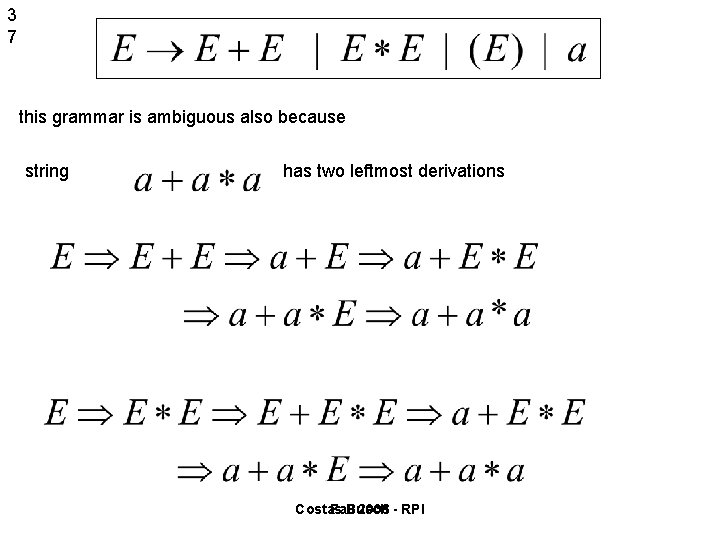 3
7
E → E + E | E ∗ E | (E) | a
this grammar is ambiguous also because
string a + a ∗ a has two leftmost derivations
E ⇒ E + E ⇒ a + E ⇒ a + E ∗ E
⇒ a + a ∗ E ⇒ a + a * a
E ⇒ E ∗ E ⇒ E + E ∗ E ⇒ a + E ∗ E
⇒ a + a ∗ E ⇒ a + a ∗ a
Costas - RPI